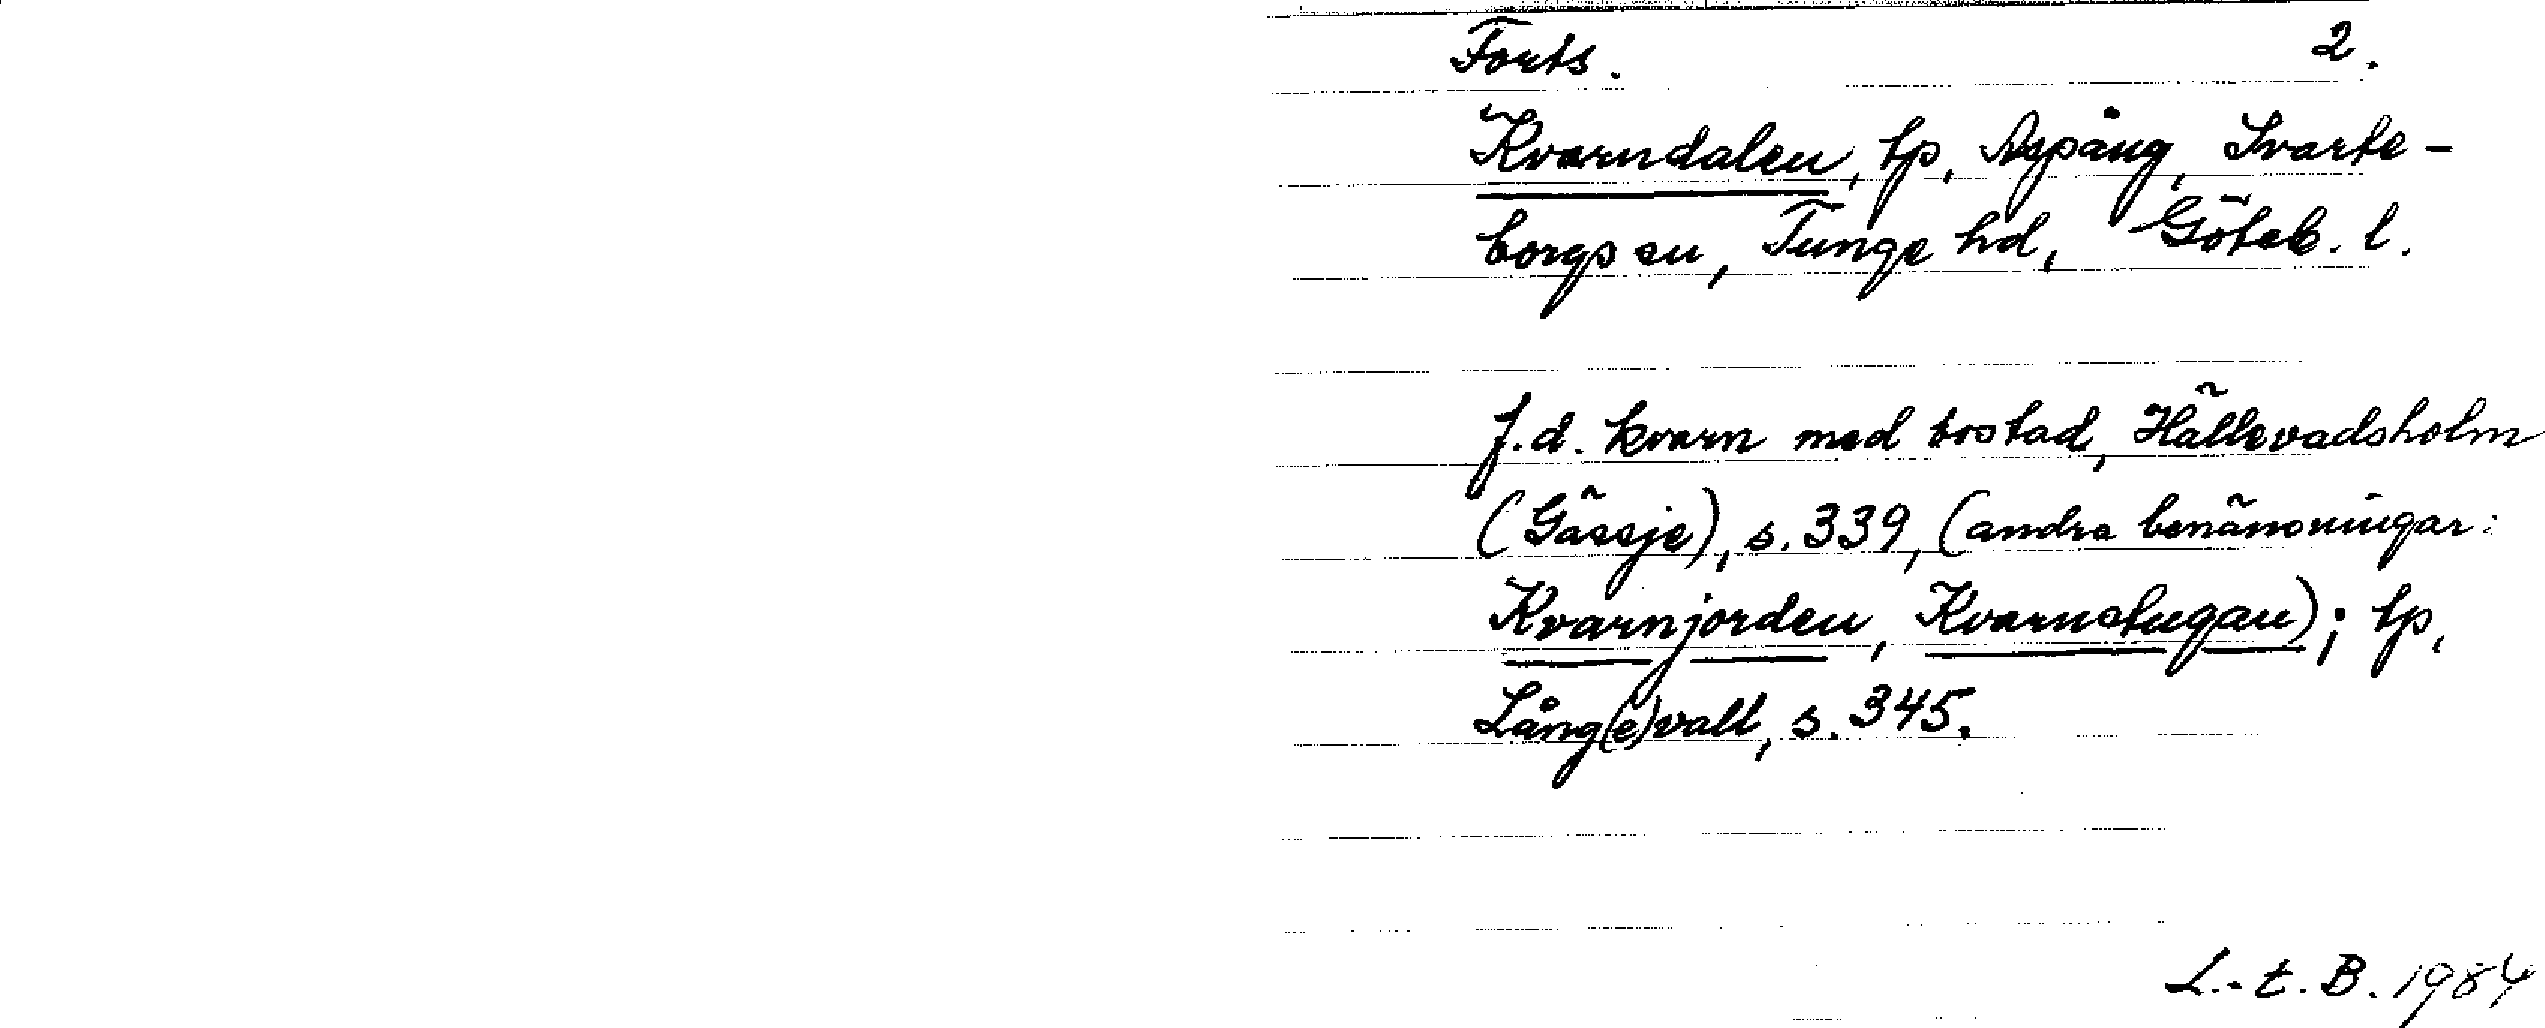 Forts. 2.
Kvarndalen, tp, Aspång, Svarte-
borgs sn, Tunge hd, Göteb. l.
f.d. kvarn med bostad, Hällevadsholm
(Gässje), s. 339, (andra benämningar:
Kvarnjorden, Kvarnstugan); tp,
Lång(e)vall, s. 345.
L.-t. B. 1984